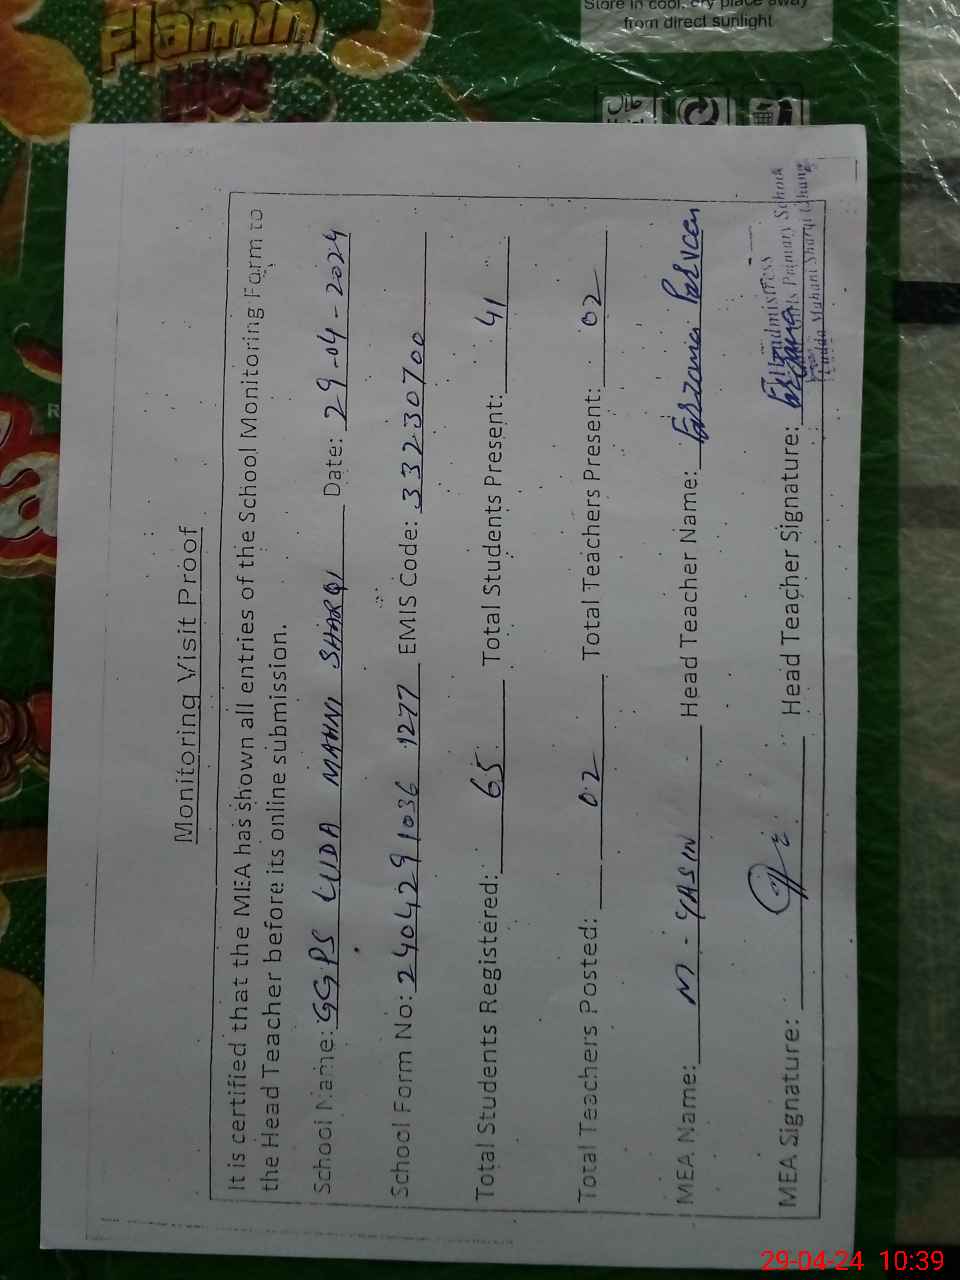 Flamin
Hot
Store in cool, dry place away
from direct sunlight
Monitoring Visit Proof
It is certified that the MEA has shown all entries of the School Monitoring Form to
the Head Teacher before its online submission.
School Name: GGPS LUDA MAHNI SHARQI Date: 29-04-2024
School Form No: 2404291036 1277 EMIS Code: 33230700
Total Students Registered: 65 Total Students Present: 41
Total Teachers Posted: 02 Total Teachers Present: 02
MEA Name: M-YASIN Head Teacher Name: Farzana Parveen
MEA Signature: Head Teacher Signature: Farzana
Headmistress
Girls Primary School
Mahani Sharqi Jhang
29-04-24 10:39